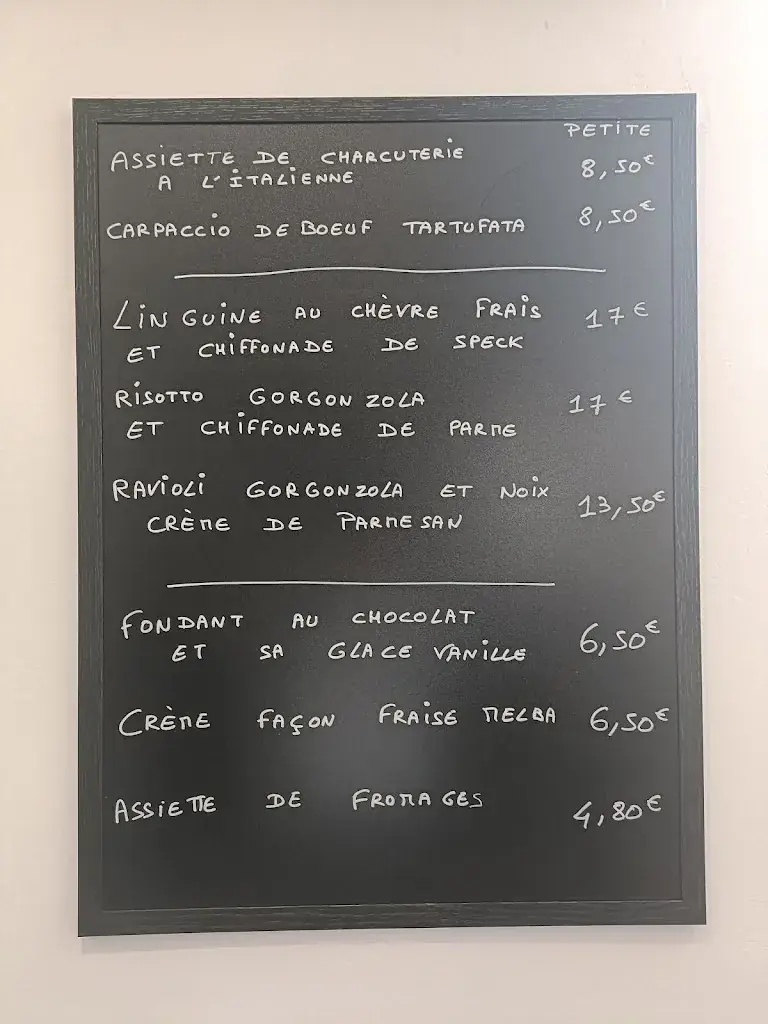 PETITE
ASSIETTE DE CHARCUTERIE
A L'ITALIENNE 8,50€
CARPACCIO DE BOEUF TARTUFATA 8,50€
LINGUINE AU CHÈVRE FRAIS 17€
ET CHIFFONADE DE SPECK
RISOTTO GORGONZOLA 17€
ET CHIFFONADE DE PARME
RAVIOLI GORGONZOLA ET NOIX 13,50€
CRÈME DE PARMESAN
FONDANT AU CHOCOLAT
ET SA GLACE VANILLE 6,50€
CRÈME FAÇON FRAISE MELBA 6,50€
ASSIETTE DE FROMAGES 4,80€